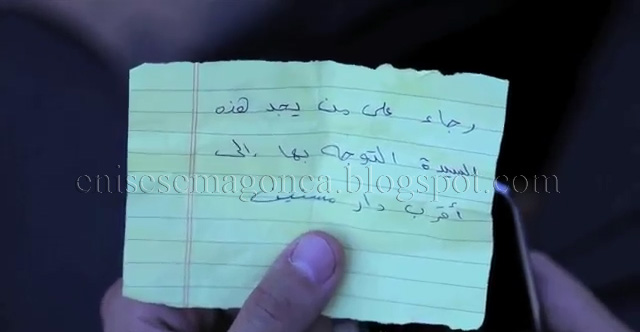 رجاء على من يجد هذه
السيدة التوجه بها إلى
eniscscmagonca.blogspot.com
أقرب دار مسنين